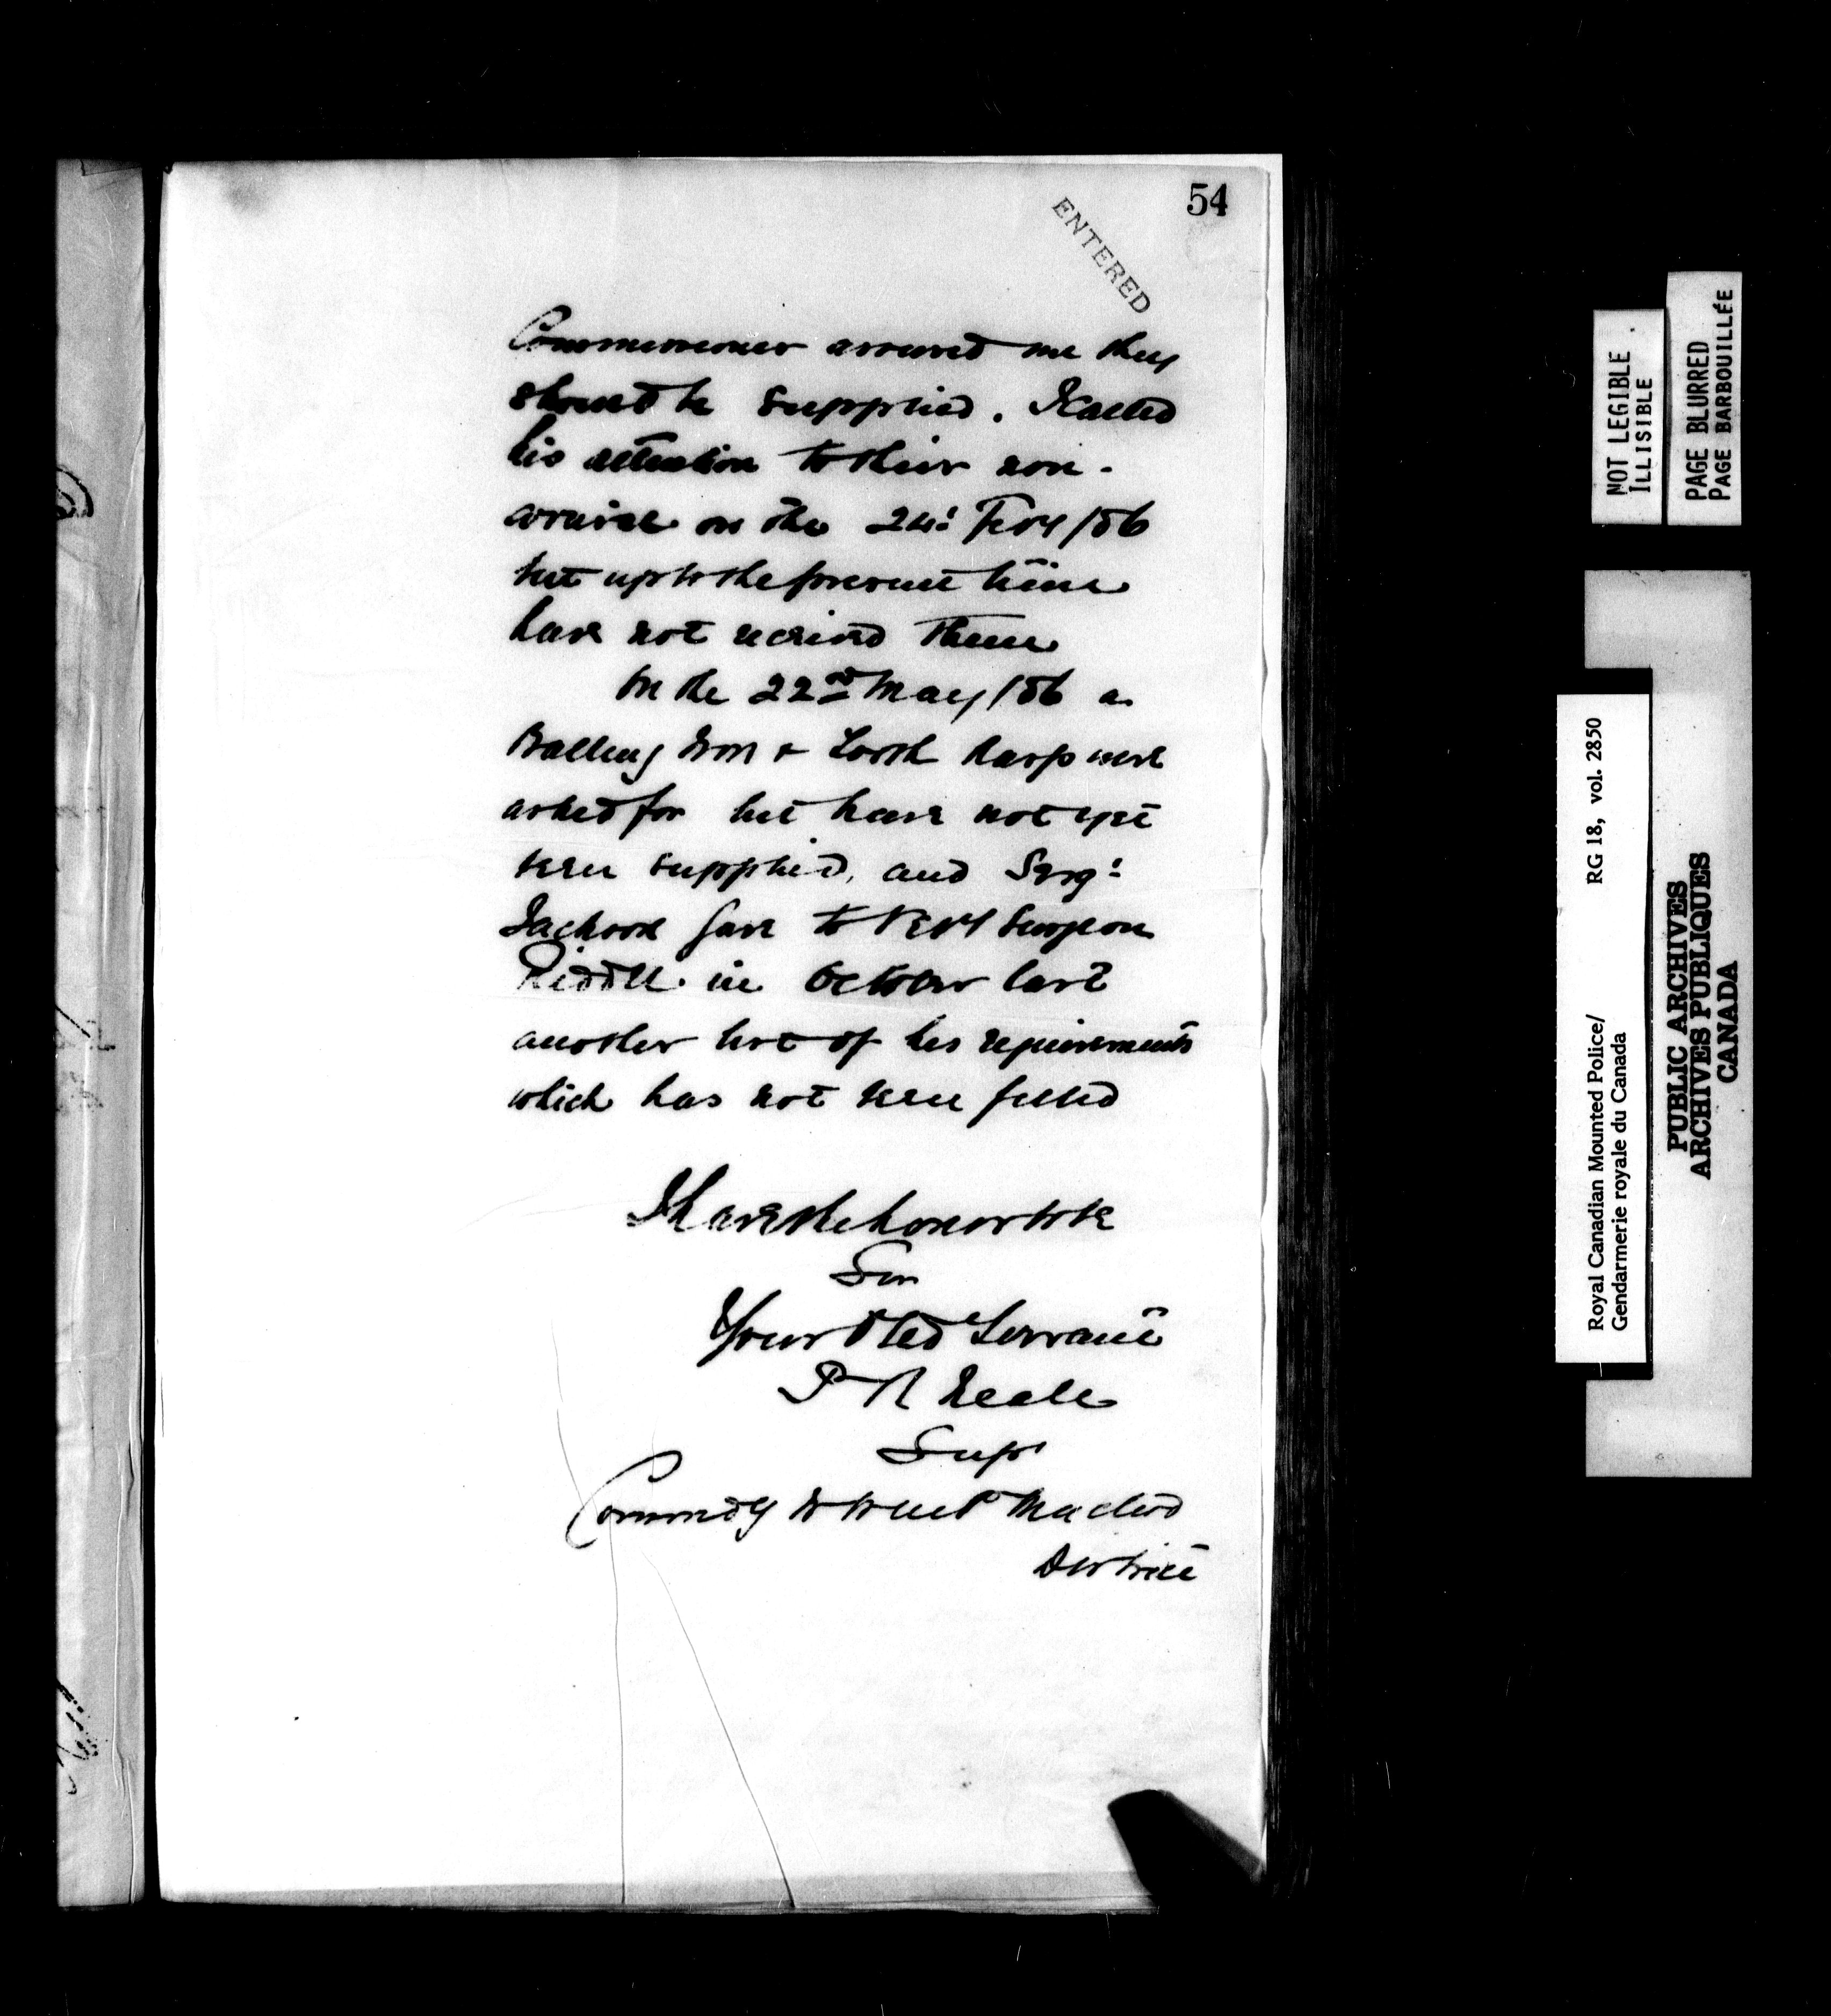 54
ENTERED
Commissioner assured me they
should be supplied. I called
his attention to their non-
arrival on the 24t Feby /86
but up to the present time
have not received them
On the 22nd May /86 a
Balling Iron & Tooth Rasp were
asked for but have not yet
been supplied, and Sergt
Jackson gave to Vety Surgeon
Riddell in October last
another list of his requirements
which has not been filled
I have the honor to be
Sir
Your Obed Servant
P R Neale
Supt
Commdg N W M P Macleod
District
NOT LEGIBLE
ILLISIBLE
PAGE BLURRED
PAGE BARBOUILLÉE
Royal Canadian Mounted Police/ RG 18, vol. 2850
Gendarmerie royale du Canada
PUBLIC ARCHIVES
ARCHIVES PUBLIQUES
CANADA